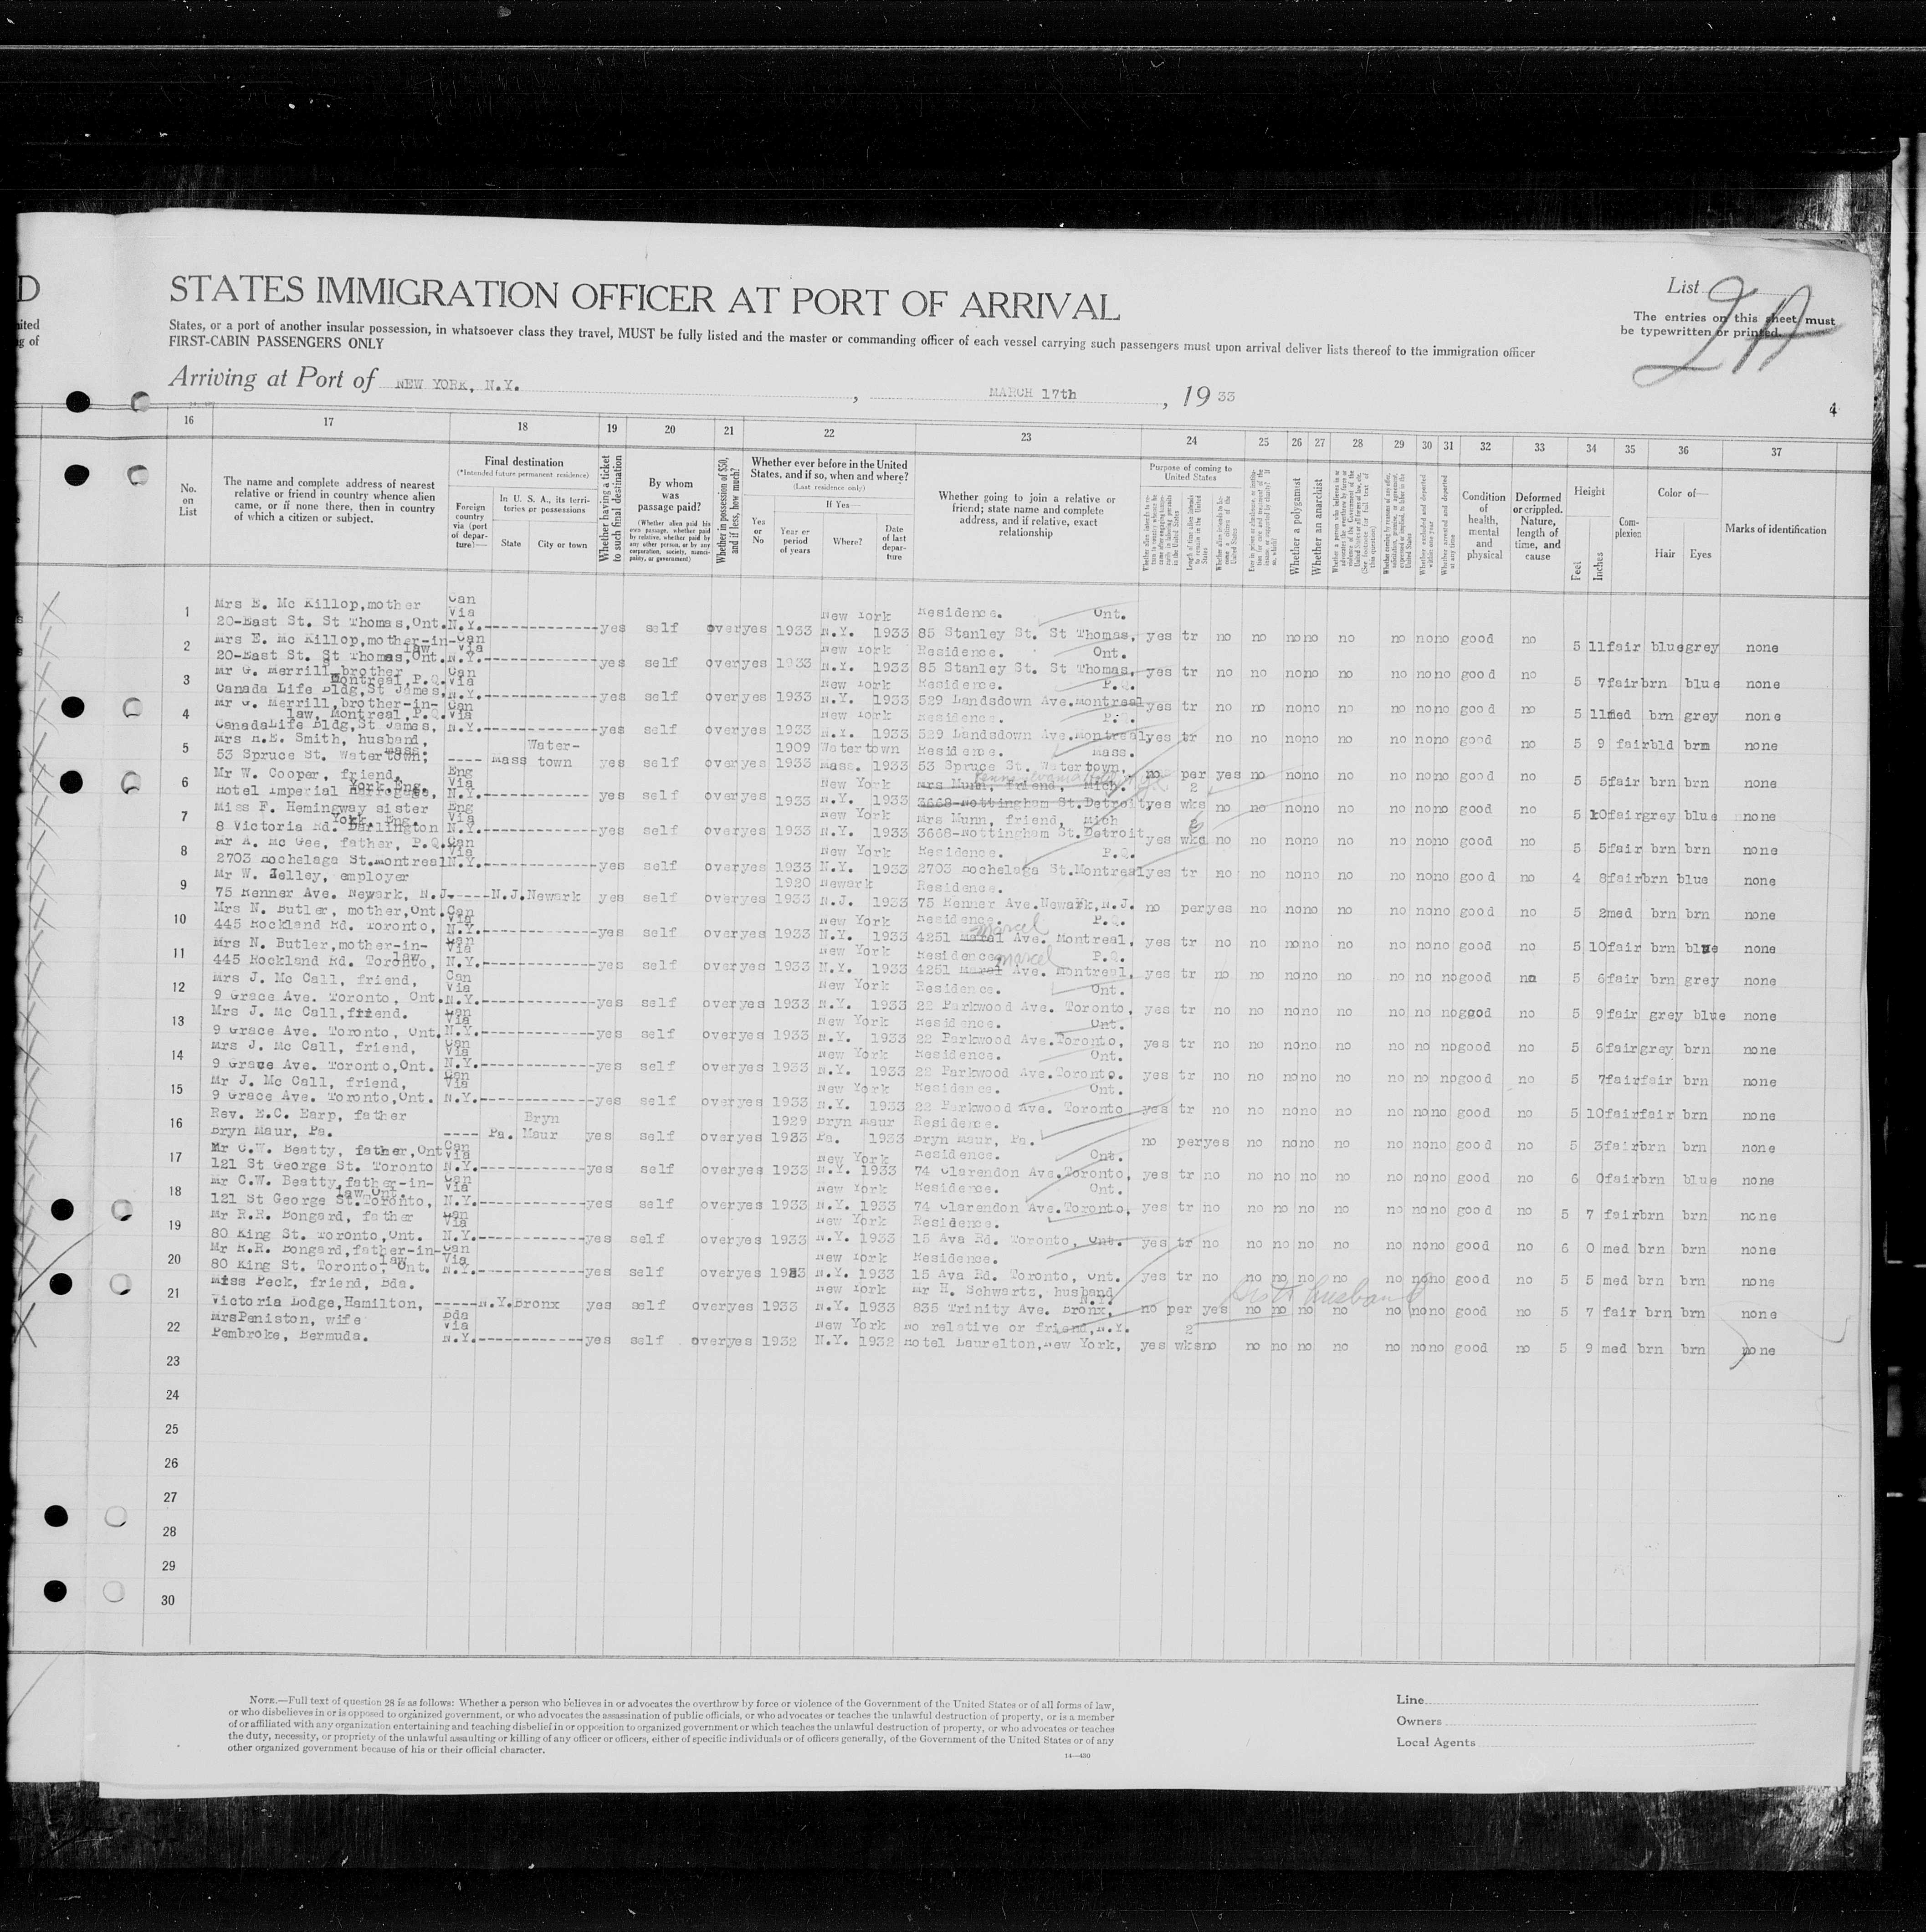 D
nited
g of
STATES IMMIGRATION OFFICER AT PORT OF ARRIVAL
List 2A
The entries on this sheet must
be typewritten or printed.
States, or a port of another insular possession, in whatsoever class they travel, MUST be fully listed and the master or commanding officer of each vessel carrying such passengers must upon arrival deliver lists thereof to the immigration officer
FIRST-CABIN PASSENGERS ONLY
Arriving at Port of NEW YORK, N.Y. , MARCH 17th , 19 33
4
16 17 18 19 20 21 22 23 24 25 26 27 28 29 30 31 32 33 34 35 36 37
No. on List
The name and complete address of nearest relative or friend in country whence alien came, or if none there, then in country of which a citizen or subject.
Final destination
(*Intended future permanent residence)
Foreign country via (port of departure)—
In U. S. A., its territories or possessions
State
City or town
Whether having a ticket to such final destination
By whom was passage paid?
(Whether alien paid his own passage, whether paid by relative, whether paid by any other person, or by any corporation, society, municipality, or government)
Whether in possession of $50, and if less, how much?
Whether ever before in the United States, and if so, when and where?
(Last residence only)
Yes or No
If Yes—
Year or period of years
Where?
Date of last departure
Whether going to join a relative or friend; state name and complete address, and if relative, exact relationship
Purpose of coming to United States
Whether a polygamist
Whether an anarchist
Condition of health, mental and physical
Deformed or crippled. Nature, length of time, and cause
Height
Feet
Inches
Complexion
Color of—
Hair
Eyes
Marks of identification
1 Mrs E. Mc Killop,mother Can Via New York Residence. Ont.
20-East St. St Thomas,Ont. N.Y. yes self over yes 1933 N.Y. 1933 85 Stanley St. St Thomas, yes tr no no no no no no no no good no 5 11 fair blue grey none
2 Mrs E. Mc Killop,mother-in-law Can Via New York Residence. Ont.
20-East St. St Thomas,Ont. N.Y. yes self over yes 1933 N.Y. 1933 85 Stanley St. St Thomas, yes tr no no no no no no no no good no 5 7 fair brn blue none
3 Mr G. Merrill,brother Montreal,P.Q. Can Via New York Residence. P.Q.
Canada Life Bldg,St James. N.Y. yes self over yes 1933 N.Y. 1933 529 Landsdown Ave.Montreal yes tr no no no no no no no no good no 5 11 med brn grey none
4 Mr G. Merrill,brother-in-law, Montreal,P.Q. Can Via New York Residence. P.Q.
CanadaLife Bldg,St James, N.Y. yes self over yes 1933 N.Y. 1933 529 Landsdown Ave.Montreal yes tr no no no no no no no no good no 5 9 fair bld brn none
5 Mrs H.E. Smith, husband, Water- 1909 Watertown Residence. Mass.
53 Spruce St. Watertown, Mass. ---- Mass town yes self over yes 1933 Mass. 1933 53 Spruce St. Watertown, no per yes no no no no no no no good no 5 5 fair brn brn none
6 Mr W. Cooper, friend. York,Eng. Eng Via New York Mrs Munn, friend, Mich. 2
Hotel Imperial Harrogate, N.Y. yes self over yes 1933 N.Y. 1933 3668-Nottingham St.Detroit yes wks no no no no no no no no good no 5 10 fair grey blue none
7 Miss F. Hemingway sister York, Eng. Eng Via New York Mrs Munn, friend, Mich 6
8 Victoria Rd. Darlington N.Y. yes self over yes 1933 N.Y. 1933 3668-Nottingham St.Detroit yes wks no no no no no no no no good no 5 5 fair brn brn none
8 Mr A. Mc Gee, father, P.Q. Can Via New York Residence. P.Q.
2703 Hochelaga St.Montreal N.Y. yes self over yes 1933 N.Y. 1933 2703 Hochelaga St.Montreal yes tr no no no no no no no no good no 4 8 fair brn blue none
9 Mr W. Zelley, employer 1920 Newark Residence.
75 Renner Ave. Newark, N.J. ---- N.J. Newark yes self over yes 1933 N.J. 1933 75 Renner Ave.Newark,N.J. no per yes no no no no no no no good no 5 2 med brn brn none
10 Mrs N. Butler, mother,Ont. Can Via New York Residence. Marcel P.Q.
445 Rockland Rd. Toronto, N.Y. yes self over yes 1933 N.Y. 1933 4251 Maral Ave. Montreal, yes tr no no no no no no no no good no 5 10 fair brn blue none
11 Mrs N. Butler,mother-in-law Can Via New York Residence Marcel P.Q.
445 Rockland Rd. Toronto, N.Y. yes self over yes 1933 N.Y. 1933 4251 Maral Ave. Montreal, yes tr no no no no no no no no good no 5 6 fair brn grey none
12 Mrs J. Mc Call, friend, Can Via New York Residence. Ont.
9 Grace Ave. Toronto, Ont. N.Y. yes self over yes 1933 N.Y. 1933 22 Parkwood Ave. Toronto, yes tr no no no no no no no no good no 5 9 fair grey blue none
13 Mrs J. Mc Call,friend. Can Via New York Residence. Ont.
9 Grace Ave. Toronto, Ont. N.Y. yes self over yes 1933 N.Y. 1933 22 Parkwood Ave.Toronto, yes tr no no no no no no no no good no 5 6 fair grey brn none
14 Mrs J. Mc Call, friend, Can Via New York Residence. Ont.
9 Grace Ave. Toronto,Ont. N.Y. yes self over yes 1933 N.Y. 1933 22 Parkwood Ave.Toronto. yes tr no no no no no no no no good no 5 7 fair fair brn none
15 Mr J. Mc Call, friend, Can Via New York Residence. Ont.
9 Grace Ave. Toronto,Ont. N.Y. yes self over yes 1933 N.Y. 1933 22 Parkwood Ave. Toronto yes tr no no no no no no no no good no 5 10 fair fair brn none
16 Rev. E.C. Earp, father Bryn 1929 Bryn Maur Residence.
Bryn Maur, Pa. ---- Pa. Maur yes self over yes 1933 Pa. 1933 Bryn Maur, Pa. no per yes no no no no no no no good no 5 3 fair brn brn none
17 Mr C.W. Beatty, father,Ont Can Via New York Residence. Ont.
121 St George St. Toronto N.Y. yes self over yes 1933 N.Y. 1933 74 Clarendon Ave.Toronto, yes tr no no no no no no no no good no 6 0 fair brn blue none
18 Mr C.W. Beatty,father-in-law Ont. Can Via New York Residence. Ont.
121 St George St.Toronto, N.Y. yes self over yes 1933 N.Y. 1933 74 Clarendon Ave.Toronto, yes tr no no no no no no no no good no 5 7 fair brn brn none
19 Mr R.R. Bongard, father Can Via New York Residence.
80 King St. Toronto,Ont. N.Y. yes self over yes 1933 N.Y. 1933 15 Ava Rd. Toronto, Ont. yes tr no no no no no no no no good no 6 0 med brn brn none
20 Mr R.R. Bongard,father-in-law Can Via New York Residence.
80 King St. Toronto, Ont. N.Y. yes self over yes 1933 N.Y. 1933 15 Ava Rd. Toronto, Ont. yes tr no no no no no no no no good no 5 5 med brn brn none
21 Miss Peck, friend, Bda. New York Mr H. Schwartz, husband N.Y. with husband
Victoria Lodge,Hamilton, ---- N.Y. Bronx yes self over yes 1933 N.Y. 1933 835 Trinity Ave. Bronx, no per yes no no no no no no no good no 5 7 fair brn brn none
22 MrsPeniston, wife Bda Via New York No relative or friend,N.Y. 2
Pembroke, Bermuda. N.Y. yes self over yes 1932 N.Y. 1932 Hotel Laurelton,New York, yes wks no no no no no no no no good no 5 9 med brn brn none
23
24
25
26
27
28
29
30
NOTE.—Full text of question 28 is as follows: Whether a person who believes in or advocates the overthrow by force or violence of the Government of the United States or of all forms of law,
or who disbelieves in or is opposed to organized government, or who advocates the assassination of public officials, or who advocates or teaches the unlawful destruction of property, or is a member
of or affiliated with any organization entertaining and teaching disbelief in or opposition to organized government or which teaches the unlawful destruction of property, or who advocates or teaches
the duty, necessity, or propriety of the unlawful assaulting or killing of any officer or officers, either of specific individuals or of officers generally, of the Government of the United States or of any
other organized government because of his or their official character.
14—430
Line
Owners
Local Agents